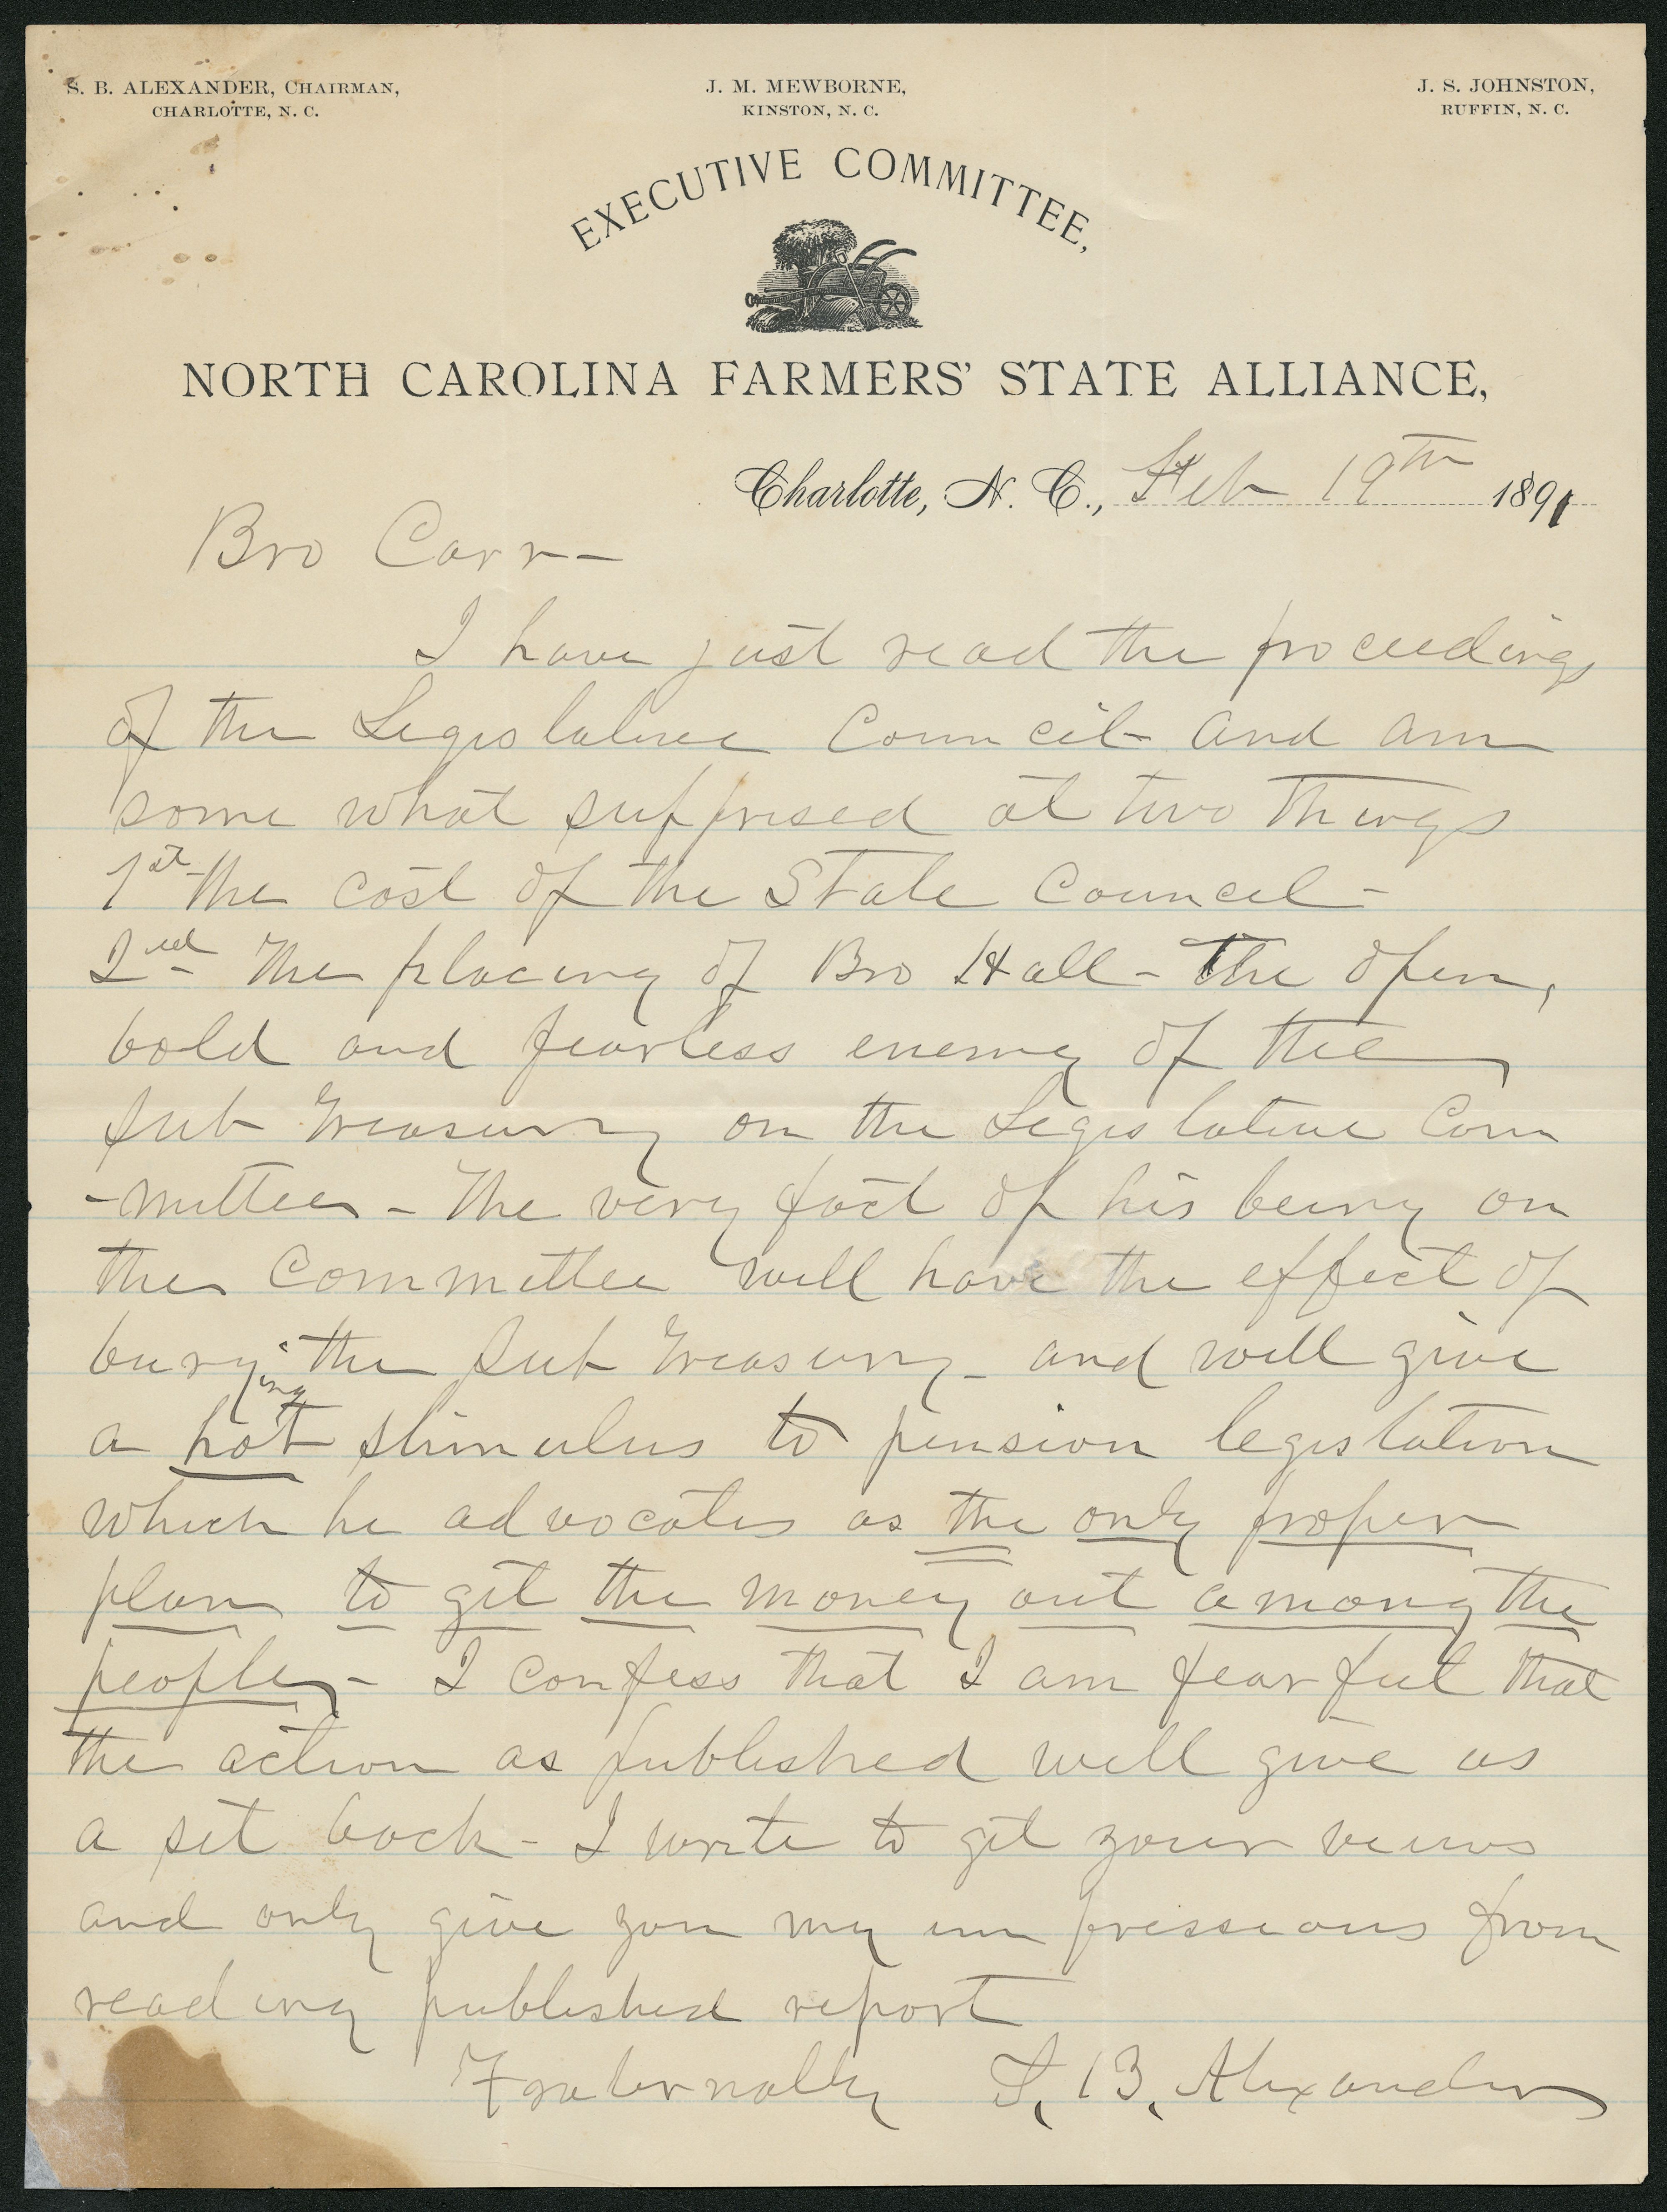 S. B. ALEXANDER, CHAIRMAN,
CHARLOTTE, N. C.
J. M. MEWBORNE,
KINSTON, N. C.
J. S. JOHNSTON,
RUFFIN, N. C.
EXECUTIVE COMMITTEE,
NORTH CAROLINA FARMERS' STATE ALLIANCE,
Charlotte, N. C., Feb 19th 1891
Bro Carr-
I have just read the proceedings
of the Legislative Council and am
some what surprised at two things
1st The cost of the State Council -
2nd The placing of Bro Hall - The open,
bold and fearless enemy of the
sub Treasury on the Legislative Com
-mittee - The very fact of his being on
the Committee will have the effect of
burying the sub Treasury - and will give
a hot stimulus to pension legislation
which he advocates as the only proper
plan to get the money out among the
people - I confess that I am fearful that
the action as published will give us
a set back - I write to get your views
and only give you my impressions from
reading published report
Fraternally S. B. Alexander